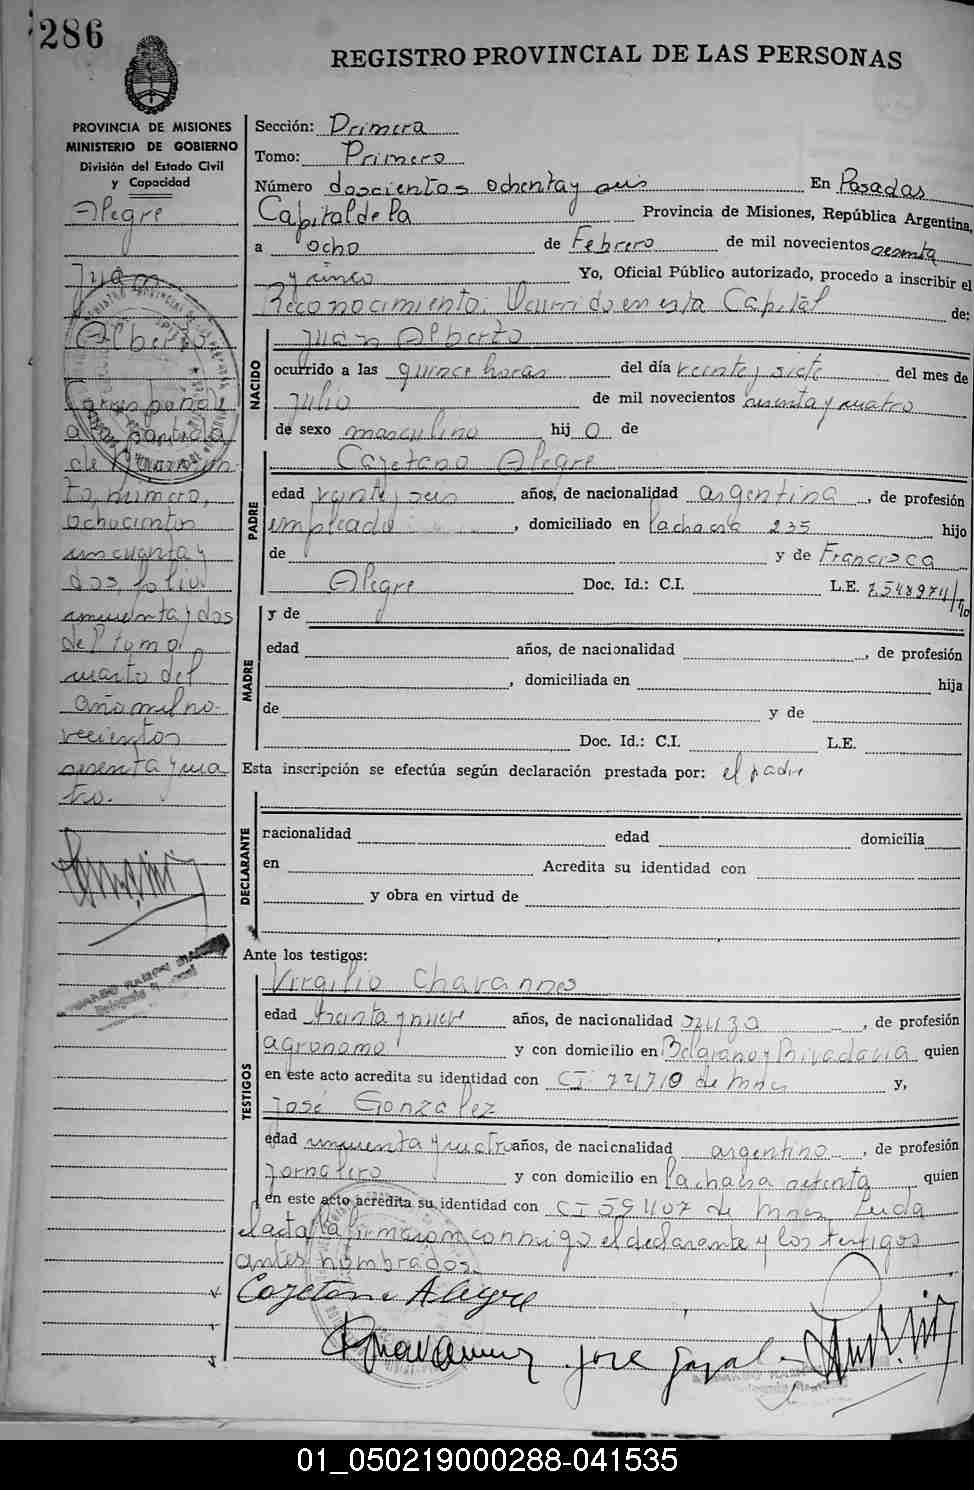 286
REGISTRO PROVINCIAL DE LAS PERSONAS
PROVINCIA DE MISIONES
MINISTERIO DE GOBIERNO
División del Estado Civil
y Capacidad
Alegre
Juan
Alberto
Corresponde
a la partida
de Nacimien
to, número,
ochocientos
cincuenta y
dos, folio
cincuenta y dos
del tomo
cuarto del
año mil no-
vecientos
sesenta y cua
tro.
Sección: Primera
Tomo: Primero
Número doscientos ochenta y seis En Posadas
Capital de la Provincia de Misiones, República Argentina,
a ocho de Febrero de mil novecientos sesenta
y cinco Yo, Oficial Público autorizado, procedo a inscribir el
Reconocimiento. Ocurrido en esta Capital de:
NACIDO
Juan Alberto
ocurrido a las quince horas del día veinte y siete del mes de
Julio de mil novecientos sesenta y cuatro
de sexo masculino hijo de
PADRE
Cayetano Alegre
edad veinte y seis años, de nacionalidad argentina, de profesión
empleado, domiciliado en la chacra 235 hijo
de y de Francisca
Alegre Doc. Id.: C.I. L.E. 7.548974/
MADRE
y de
edad años, de nacionalidad, de profesión
, domiciliada en hija
de y de
Doc. Id.: C.I. L.E.
Esta inscripción se efectúa según declaración prestada por: el padre
DECLARANTE
nacionalidad edad domicilia
en Acredita su identidad con
y obra en virtud de
Ante los testigos:
TESTIGOS
Virgilio Chavannes
edad treinta y nueve años, de nacionalidad suizo, de profesión
agronomo y con domicilio en Belgrano y Rivadavia quien
en este acto acredita su identidad con CI de Mnes y,
José González
edad cincuenta y cuatro años, de nacionalidad argentino, de profesión
Jornalero y con domicilio en la chacra setenta quien
en este acto acredita su identidad con CI 59407 de Mnes Leida
el acta la firmaron conmigo el declarante y los testigos
antes nombrados.
Cayetano Alegre
Jose
01_050219000288-041535